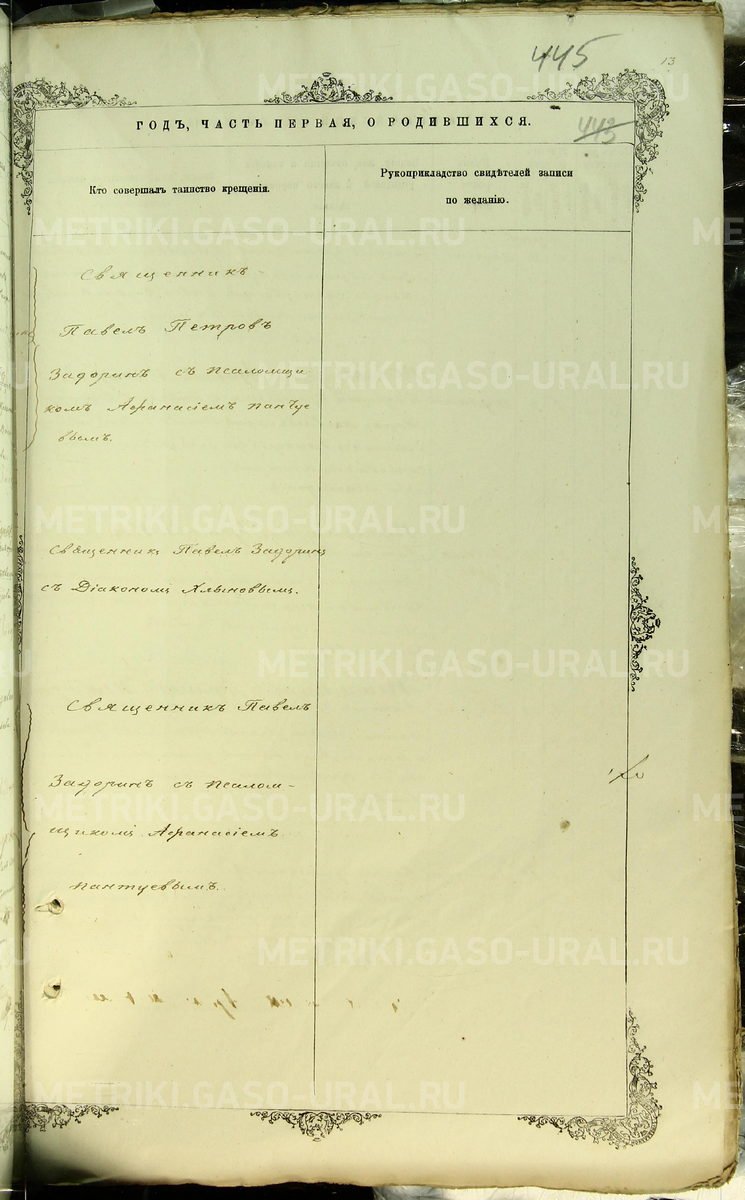 445
13
ГОДЪ, ЧАСТЬ ПЕРВАЯ, О РОДИВШИХСЯ.
443
Кто совершалъ таинство крещенія.
Рукоприкладство свидѣтелей записи
по желанію.
Священникъ
Павелъ Петровъ
Задоринъ съ псаломщи
комъ Афанасіемъ Панту
евымъ.
Священникъ Павелъ Задоринъ
съ Діакономъ Хлыновымъ.
Священникъ Павелъ
Задоринъ съ псалом-
щикомъ Афанасіемъ
Пантуевымъ.
METRIKI.GASO-URAL.RU